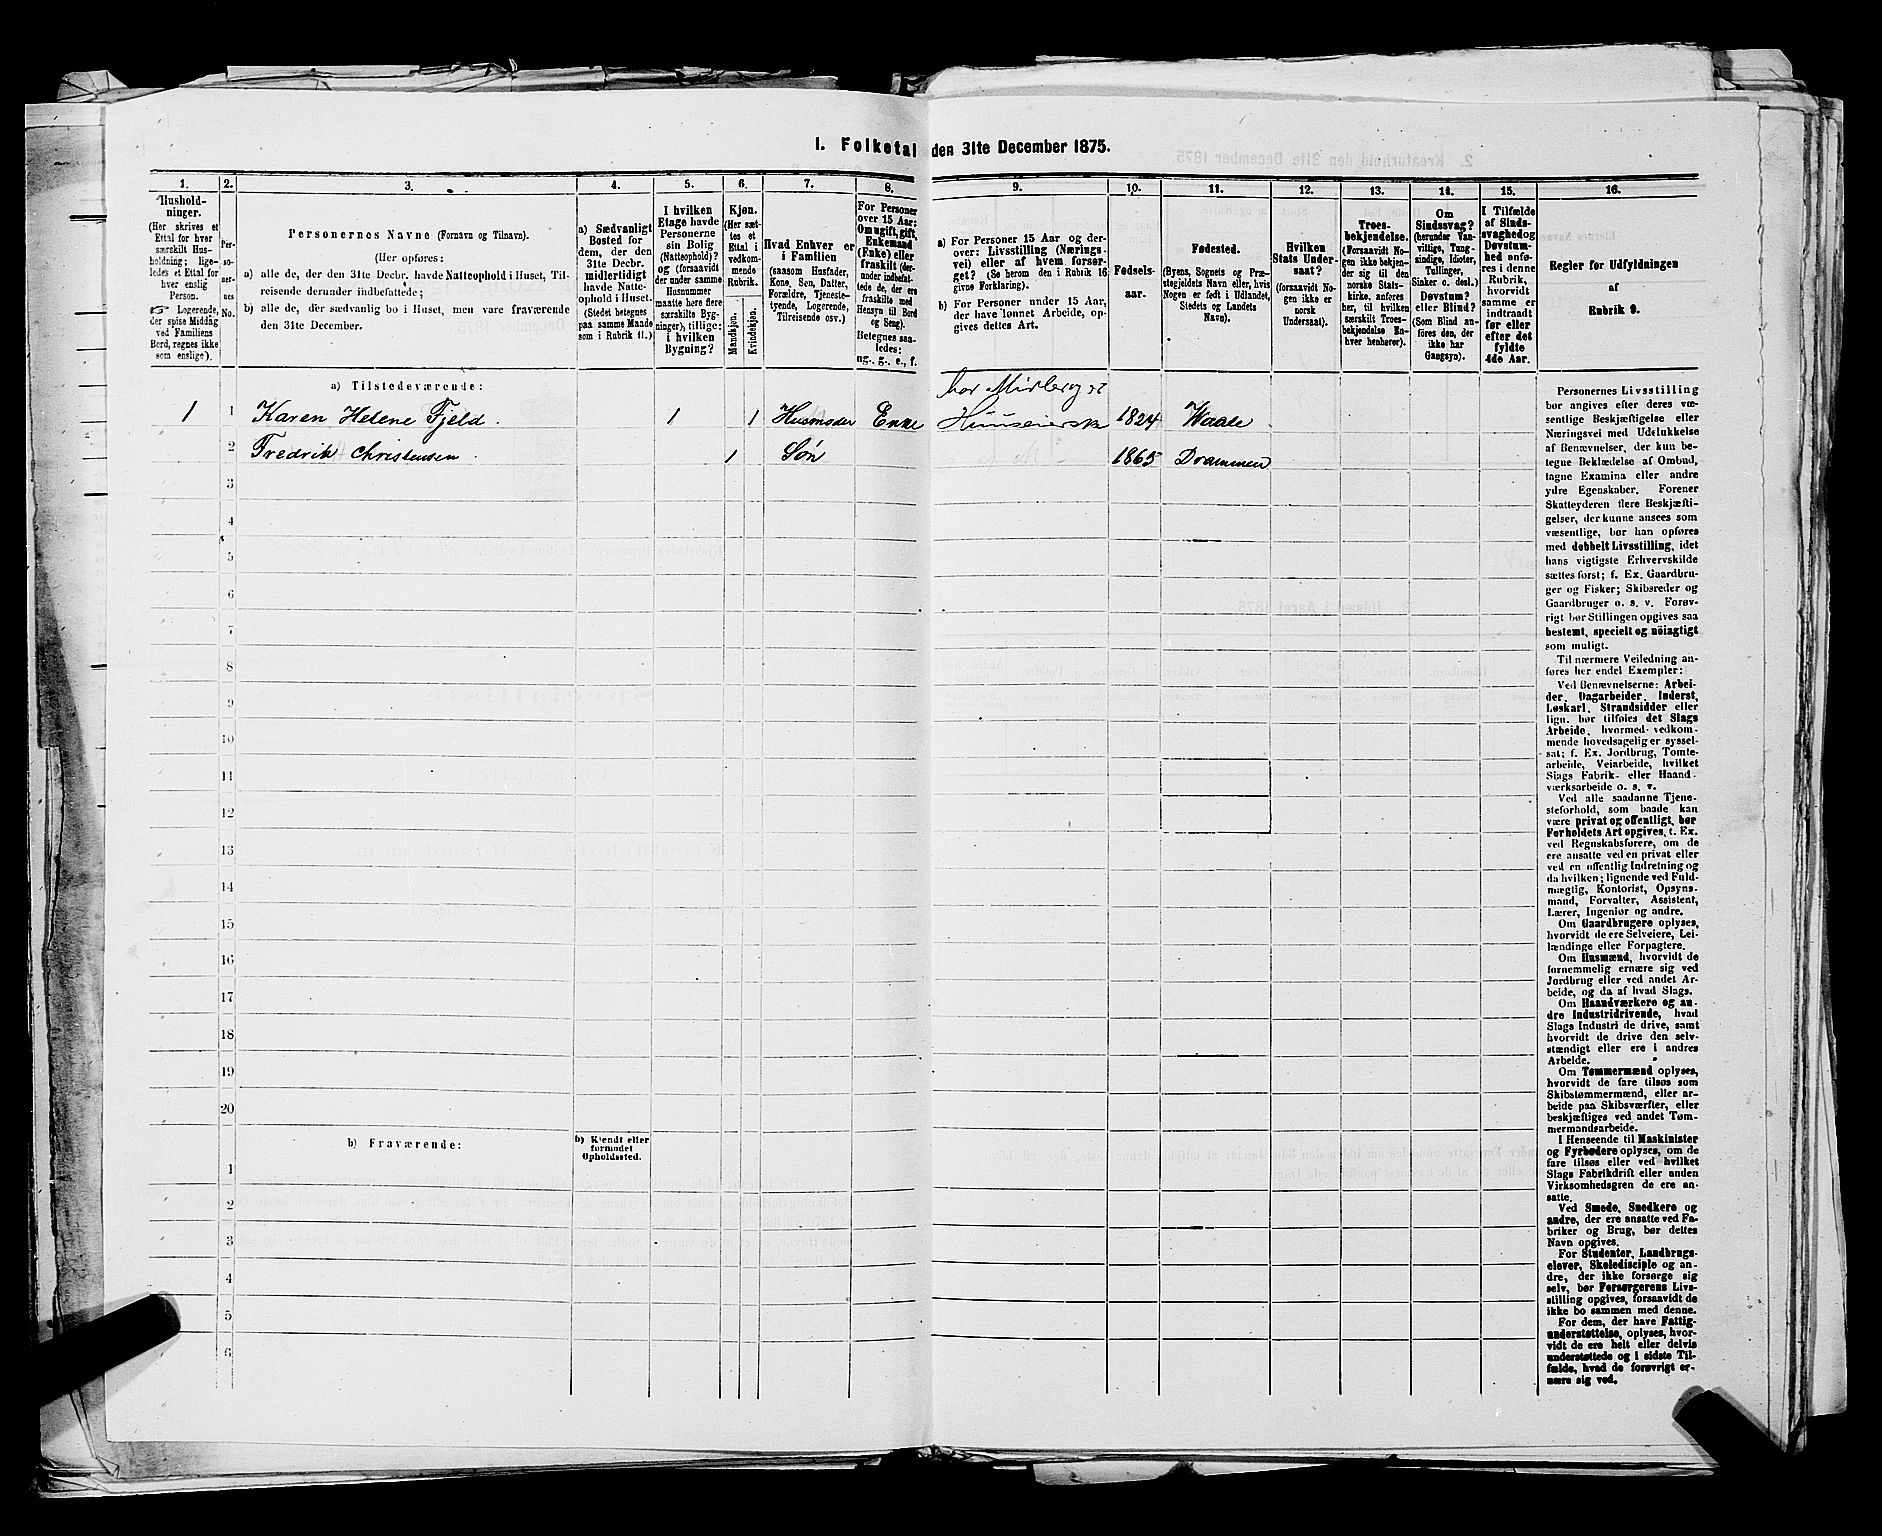 1. Folketal den 31te December 1875.
1.
Hushold-
ninger.
(Her skrives et
Ettal for hver
særskilt Hus-
holdning; lige-
ledes et Ettal for
hver enslig
Person.
Logerende,
der spise Middag
ved Familiens
Bord, regnes ikke
som enslige).
2.
Per-
so-
ner-
nes
No.
3.
Personernes Navne (Fornavn og Tilnavn).
(Her opføres:
a) alle de, der den 31te Decbr. havde Natteophold i Huset, Til-
reisende derunder indbefattede;
b) alle de, der sædvanlig bo i Huset, men vare fraværende
den 31te December.
4.
a) Sædvanligt
Bosted for
dem, der den
31te Decbr.
midlertidigt
havde Natte-
ophold i Huset.
(Stedet betegnes
paa samme Maade
som i Rubrik 11.)
5.
I hvilken
Etage havde
Personerne
sin Bolig
(Natteophold)?
og (forsaavidt
der under samme
Husnummer
maatte høre flere
særskilte Byg-
ninger), tillige:
i hvilken
Bygning?
6.
Kjøn.
(Her sæt-
tes et
Ettal i
vedkom-
mende
Rubrik.
Mandkjøn.
Kvindekjøn.
7.
Hvad Enhver er
i Familien
(saasom Husfader,
Kone, Søn, Datter,
Forældre, Tjeneste-
tyende, Logerende,
Tilreisende osv.)
8.
For Personer
over 15 Aar:
Om ugift, gift,
Enkemand
(Enke) eller
fraskilt (der-
under indbefat-
tede de, der ere
fraskilte med
Hensyn til Bord
og Seng).
Betegnes saa-
ledes:
ug., g., e., f.
9.
a) For Personer 15 Aar og der-
over: Livsstilling (Nærings-
vei) eller af hvem forsør-
get? (Se herom den i Rubrik 16
givne Forklaring).
b) For Personer under 15 Aar,
der have lønnet Arbeide, op-
gives dettes Art.
10.
Fødsels-
aar.
11.
Fødested.
(Byens, Sognets og Præ-
stegjeldets Navn eller, hvis
Nogen er født i Udlandet,
Stedets og Landets
Navn).
12.
Hvilken
Stats Under-
saat?
(forsaavidt No-
gen ikke er
norsk
Undersaat).
13.
Troes-
bekjendelse.
(Forsaavidt No-
gen ikke bekjen-
der sig til den
norske Stats-
kirke, anføres
her, til hvilken
særskilt Troes-
bekjendelse En-
hver henhører).
14.
Om
Sindssvag?
(herunder Van-
vittige, Tung-
sindige, Idioter,
Tullinger,
Sinker o. desl.)
Døvstum?
eller Blind?
(Som Blind an-
føres den, der
ikke har
Gangsyn).
15.
I Tilfælde
af Sinds-
svaghed og
Døvstum-
hed anfø-
res i denne
Rubrik,
hvorvidt
samme er
indtraadt
før eller
efter det
fyldte
4de Aar.
16.
Regler for Udfyldningen
af
Rubrik 9.
a) Tilstedeværende:
1 1 Karen Helene Fjeld. 1 1 Husmoder Enke Huuseierske 1824 Waale
2 Fredrik Christensen 1 Søn 1865 Drammen
3
4
5
6
7
8
9
10
11
12
13
14
15
16
17
18
19
20
b) Fraværende:
b) Kjendt eller
formodet
Opholdssted.
1
2
3
4
5
6
Personernes Livsstilling
bør angives efter deres væ-
sentlige Beskjæftigelse eller
Næringsvei med Udelukkelse
af Benævnelser, der kun be-
tegne Beklædelse af Ombud,
tagne Examina eller andre
ydre Egenskaber. Forener
Skatteyderen flere Beskjæfti-
gelser, der kunne ansees som
væsentlige, bør han opføres
med dobbelt Livsstilling, idet
hans vigtigste Erhvervskilde
sættes først; f. Ex. Gaardbru-
ger og Fisker; Skibsreder og
Gaardbruger o. s. v. Forøv-
rigt bør Stillingen opgives saa
bestemt, specielt og nöiagtigt
som muligt.
Til nærmere Veiledning an-
føres her endel Exempler:
Ved Benævnelserne: Arbei-
der, Dagarbeider, Inderst,
Løskarl, Strandsidder eller
lign. bør tilføies det Slags
Arbeide, hvormed vedkom-
mende hovedsagelig er syssel-
sat; f. Ex. Jordbrug, Tomte-
arbeide, Veiarbeide, hvilket
Slags Fabrik- eller Haand-
værksarbeide o. s. v.
Ved alle saadanne Tjene-
steforhold, som baade kan
være privat og offentligt, bør
Forholdets Art opgives, t. Ex.
ved Regnskabsførere, om de
ere ansatte ved en privat eller
ved en offentlig Indretning og
da hvilken; lignende ved Fuld-
mægtig, Kontorist, Opsyns-
mand, Forvalter, Assistent,
Lærer, Ingeniør og andre.
Om Gaardbrugere oplyses,
hvorvidt de ere Selveiere, Lei-
lændinge eller Forpagtere.
Om Husmænd, hvorvidt de
fornemmelig ernære sig ved
Jordbrug eller ved andet Ar-
beide, og da af hvad Slags.
Om Haandværkere og an-
dre Industridrivende, hvad
Slags Industri de drive, samt
hvorvidt de drive den selv-
stændigt eller ere i andres
Arbeide.
Om Tømmermænd oplyses,
hvorvidt de fare tilsøs som
Skibstømmermænd, eller ar-
beide paa Skibsværfter, eller
beskjæftiges ved andet Tøm-
mermandsarbeide.
I Henseende til Maskinister
og Fyrbødere oplyses, om de
fare tilsøs eller ved hvilket
Slags Fabrikdrift eller anden
Virksomhedsgren de ere an-
satte.
Ved Smede, Snedkere og
andre, der ere ansatte ved Fa-
briker og Brug, bør dettes
Navn opgives.
For Studenter, Landbrugs-
elever, Skoledisciple og an-
dre, der ikke forsørge sig
selv, bør Forsørgerens Livs-
stilling opgives, forsaavidt de
ikke bo sammen med denne.
For dem, der have Fattig-
understøttelse, oplyses, hvor-
vidt de ere helt eller delvis
understøttede og i sidste Til-
fælde, hvad de forøvrigt er-
nære sig ved.